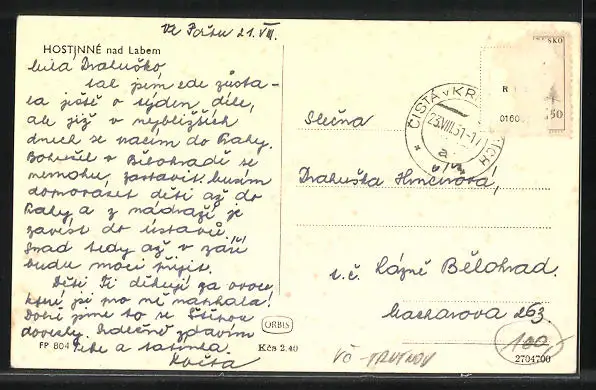 Ve Fořtu 21.VIII.
HOSTINNÉ nad Labem
Milá Draluško,
tak jsem zde zůsta-
la ještě o týden déle,
ale již v nejbližších
dnech se vracím do Prahy.
Bohužel v Bělohradě se
nemohu zastavit. Musím
dopravit děti až do
Prahy a z nádraží je
zavést do ústavů.
Snad tedy až v září
budu moci přijít.
Děti Ti děkují za ovoce,
které jsi pro mě natrhala!
Dobře jsme to se
dovezly. Srdečně zdravím
Tebe a tatínka
Květa
FP 804
ORBIS
Kčs 2.40
ČISTÁ v KR
23.VIII.51-17
a
SKO
R
0160
50
Slečna
Draluška Hmčírová,
t.č. Lázně Bělohrad.
Macharova 263.
100
VČ - TRUTNOV
2704700